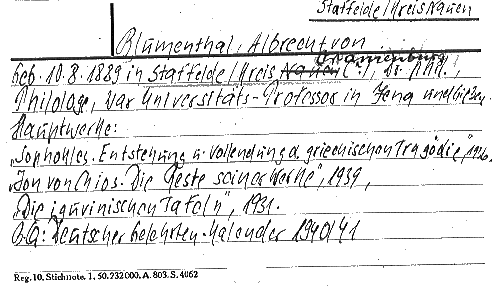 Staffelde/Kreis Nauen
Blumenthal, Albrecht von
Oranienburg
Geb. 10.8.1889 in Staffelde/Kreis Nauen (?), Dr. phil.,
Philologe, War Universitäts-Professor in Jena und Gießen.
Hauptwerke:
„Sophokles. Entstehung u. Vollendung d. griechischen Tragödie", 1936.
„Jon von Chios. Die Reste seiner Werke", 1939,
„Die iguvinischen Tafeln", 1931.
Deutscher Gelehrten-Kalender 1940/41
Reg. 10. Stichnote. 1. 50. 232000. A. 803. S. 4062